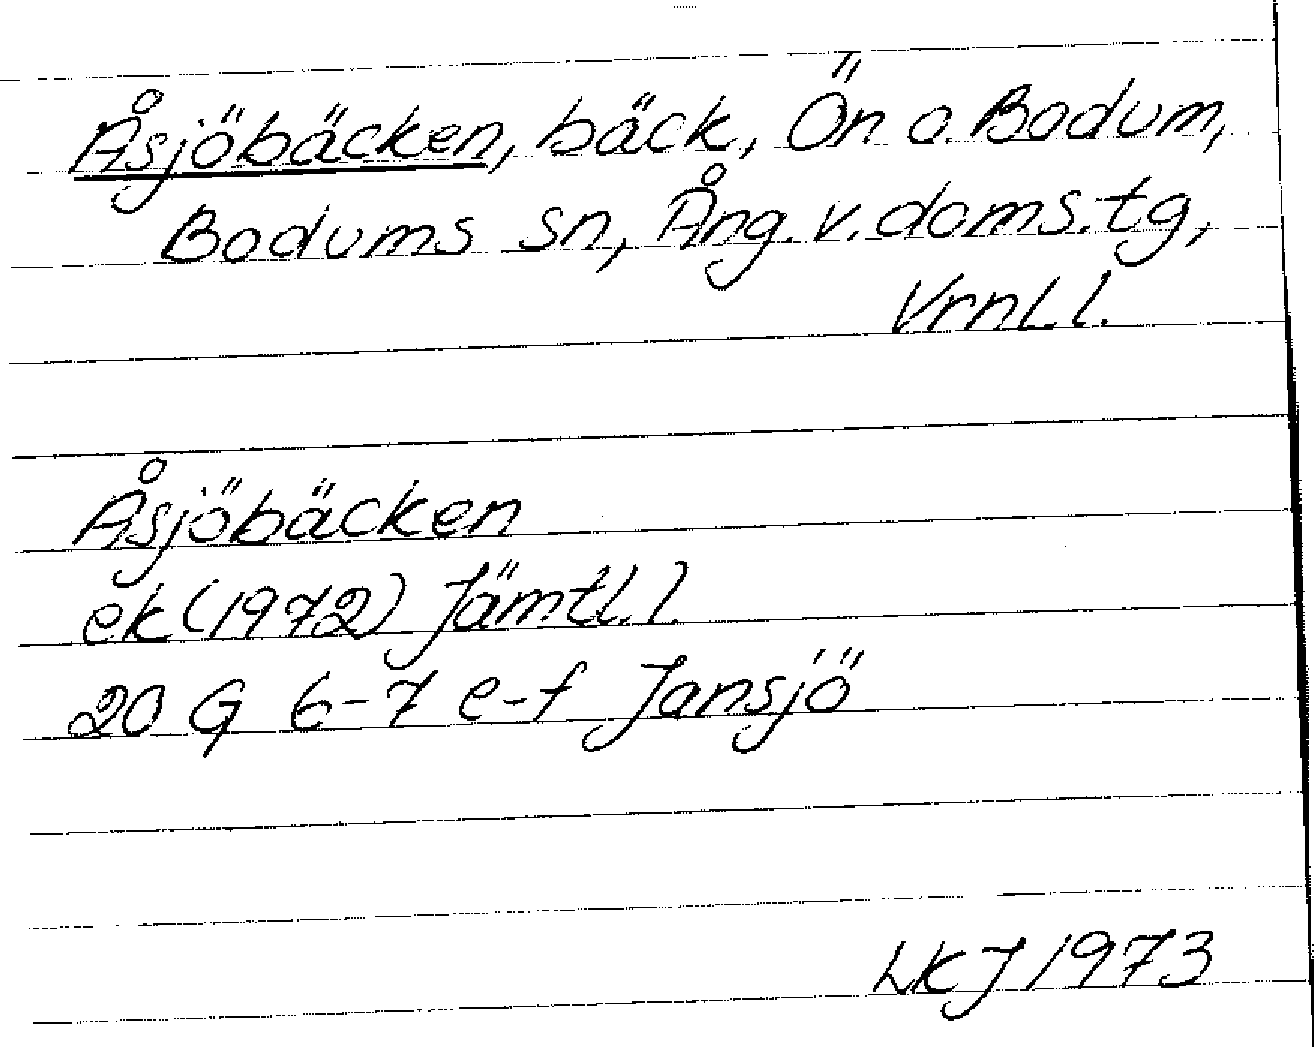 Åsjöbäcken, bäck, Ön o. Bodum,
Bodums sn, Ång. v. doms. tg,
Vrnl. l.
Åsjöbäcken
ek (1972) Jämtl. l.
20 G 6-7 e-f Jansjö
LKJ 1973